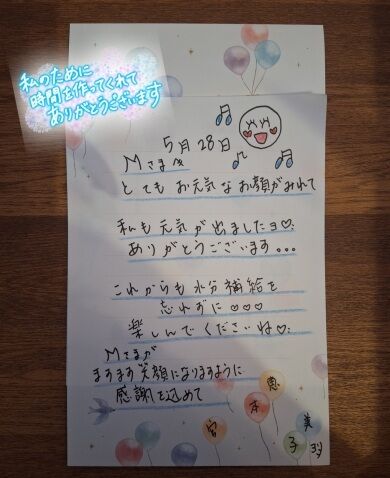 私のために
時間を作ってくれて
ありがとうございます
5月28日
Mさまへ
とてもお元気なお顔がみれて
私も元気が出ましたヨ♡
ありがとうございます...
これからも水分補給を
忘れずに♡♡♡
楽しんでくださいね♡
Mさまが
ますます笑顔になりますように
感謝を込めて
宮本恵美子